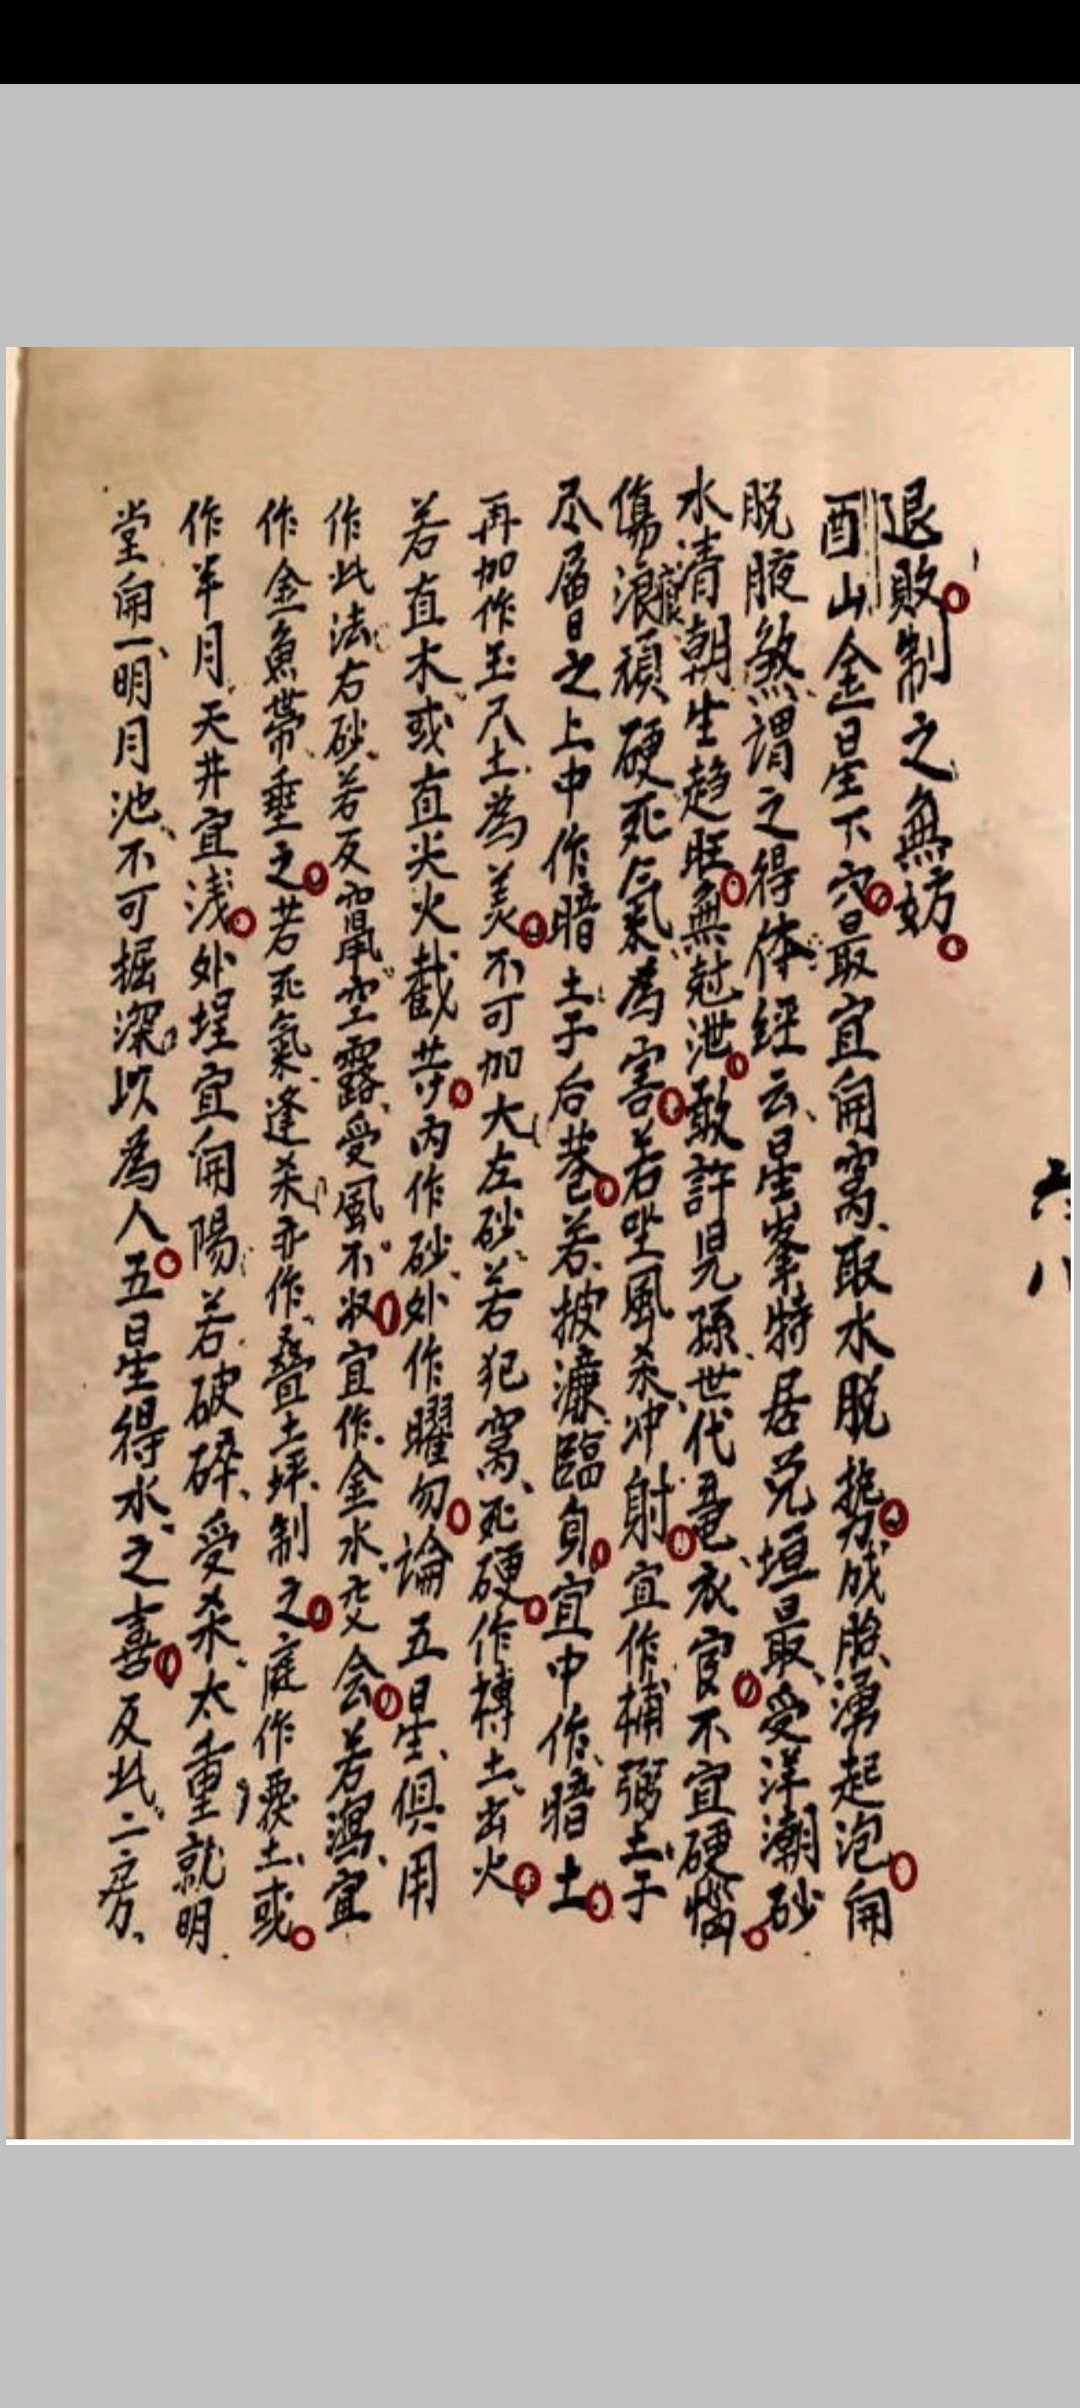 退敗制之無妨
酉山金星下穴最宜開窩取水脱抱成胎湧起泡開
脱腋煞謂之得体經云星峯特居兑垣最受洋潮砂
水清朝生趋旺無尅泄敢許児孫世代衣官不宜硬惱
傷浪痕頑硬死氣為害若坐風杀冲射宜作補弼土于
尽層之上中作暗土于后若披濂臨負宜中作暗土
再加作玉尺土為美不可加大左砂若犯窩死硬作摶土出火
若直木或直尖火截艹丙作砂外作曜勿論五星俱用
作此法右砂若反窜空露受風不收宜作金水交会若瀉宜
作金魚帶垂之若死氣逢杀亦作疊土坪制之庭作土或
作半月天井宜浅外埕宜開陽若破碎受杀太重就明
堂開一明月池不可掘深以為人五星得水之喜反此二房
六八